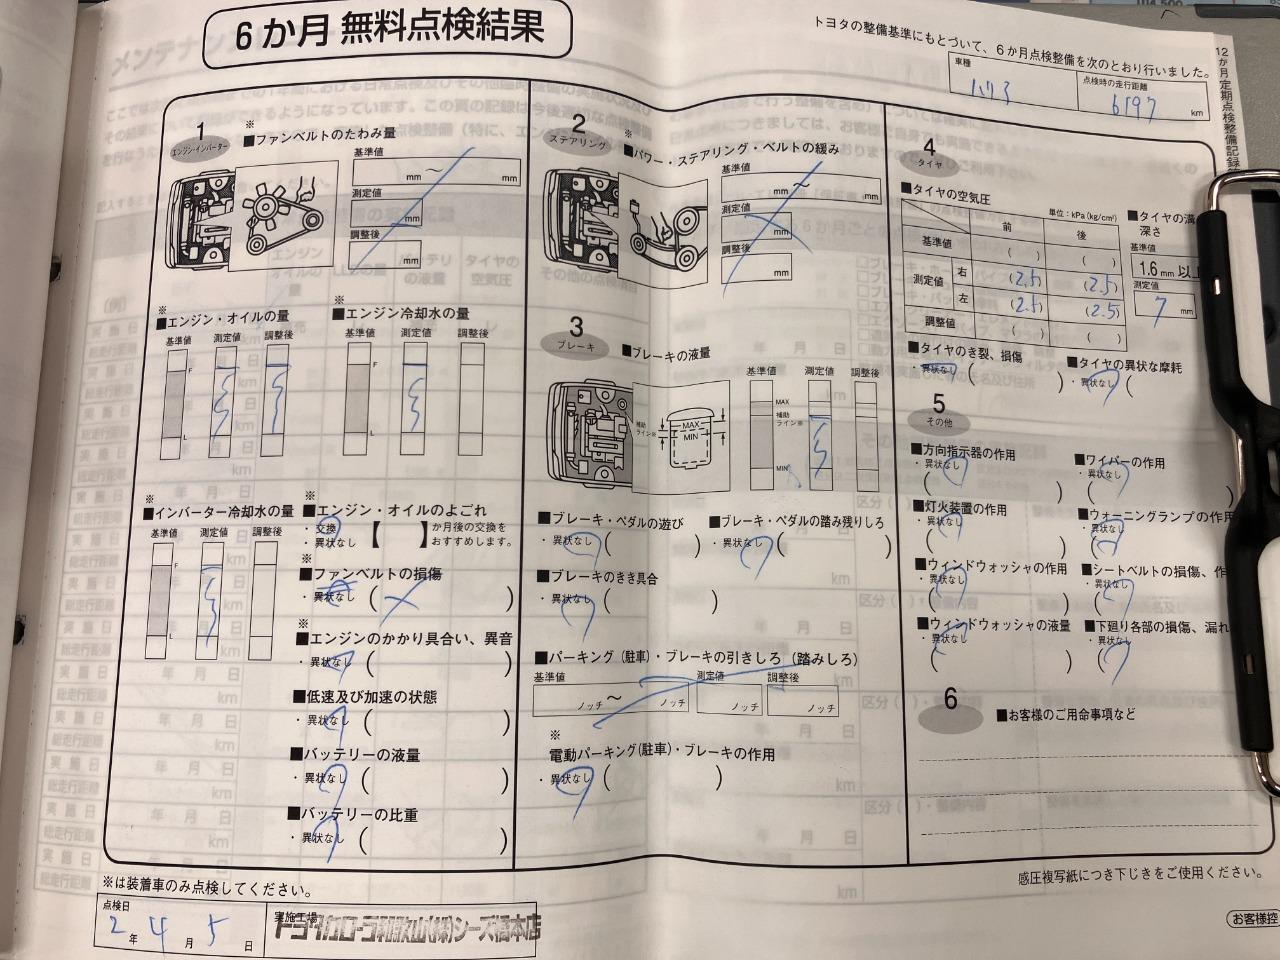 6か月 無料点検結果
トヨタの整備基準にもとづいて、6か月点検整備を次のとおり行いました。
車種
ハリヤ
点検時の走行距離
6197 km
12か月定期点検整備記録
1
エンジン・インバーター
※
■ファンベルトのたわみ量
基準値
～ mm
mm
測定値
mm
調整後
mm
※
■エンジン・オイルの量
基準値 測定値 調整後
F
L
※
■エンジン冷却水の量
基準値 測定値 調整後
F
L
※
■インバーター冷却水の量
基準値 測定値 調整後
F
L
※
■エンジン・オイルのよごれ
・交換
・異状なし
【 】か月後の交換を
おすすめします。
※
■ファンベルトの損傷
・異状なし ( )
※
■エンジンのかかり具合い、異音
・異状なし ( )
■低速及び加速の状態
・異状なし ( )
■バッテリーの液量
・異状なし ( )
■バッテリーの比重
・異状なし ( )
2
ステアリング
※
■パワー・ステアリング・ベルトの緩み
基準値
～ mm
mm
測定値
mm
調整後
mm
3
ブレーキ
■ブレーキの液量
補助
ライン※
MAX
MIN
基準値 測定値 調整後
MAX
補助
ライン※
MIN
■ブレーキ・ペダルの遊び
・異状なし ( )
■ブレーキ・ペダルの踏み残りしろ
・異状なし ( )
■ブレーキのきき具合
・異状なし ( )
■パーキング(駐車)・ブレーキの引きしろ(踏みしろ)
基準値
ノッチ ～ ノッチ
測定値
ノッチ
調整後
ノッチ
※
電動パーキング(駐車)・ブレーキの作用
・異状なし ( )
4
タイヤ
■タイヤの空気圧
単位：kPa(kg/cm²)
前 後
基準値 ( ) ( )
測定値 右 (2.5) (2.5)
左 (2.5) (2.5)
調整値 ( ) ( )
■タイヤの溝
深さ
基準値
1.6mm以上
測定値
7 mm
■タイヤのき裂、損傷
・異状なし ( )
■タイヤの異状な摩耗
・異状なし (
5
その他
■方向指示器の作用
・異状なし
( )
■ワイパーの作用
・異状なし
( )
■灯火装置の作用
・異状なし
( )
■ウォーニングランプの作用
・異状なし
( )
■ウィンドウォッシャの作用
・異状なし
( )
■シートベルトの損傷、作
・異状なし
(
■ウィンドウォッシャの液量
・異状なし
( )
■下廻り各部の損傷、漏れ
・異状なし
(
6
■お客様のご用命事項など
※は装着車のみ点検してください。
感圧複写紙につき下じきをご使用ください。
点検日
2年 4月 5日
実施工場
トヨタカローラ和歌山(株)シーズ橋本店
お客様控